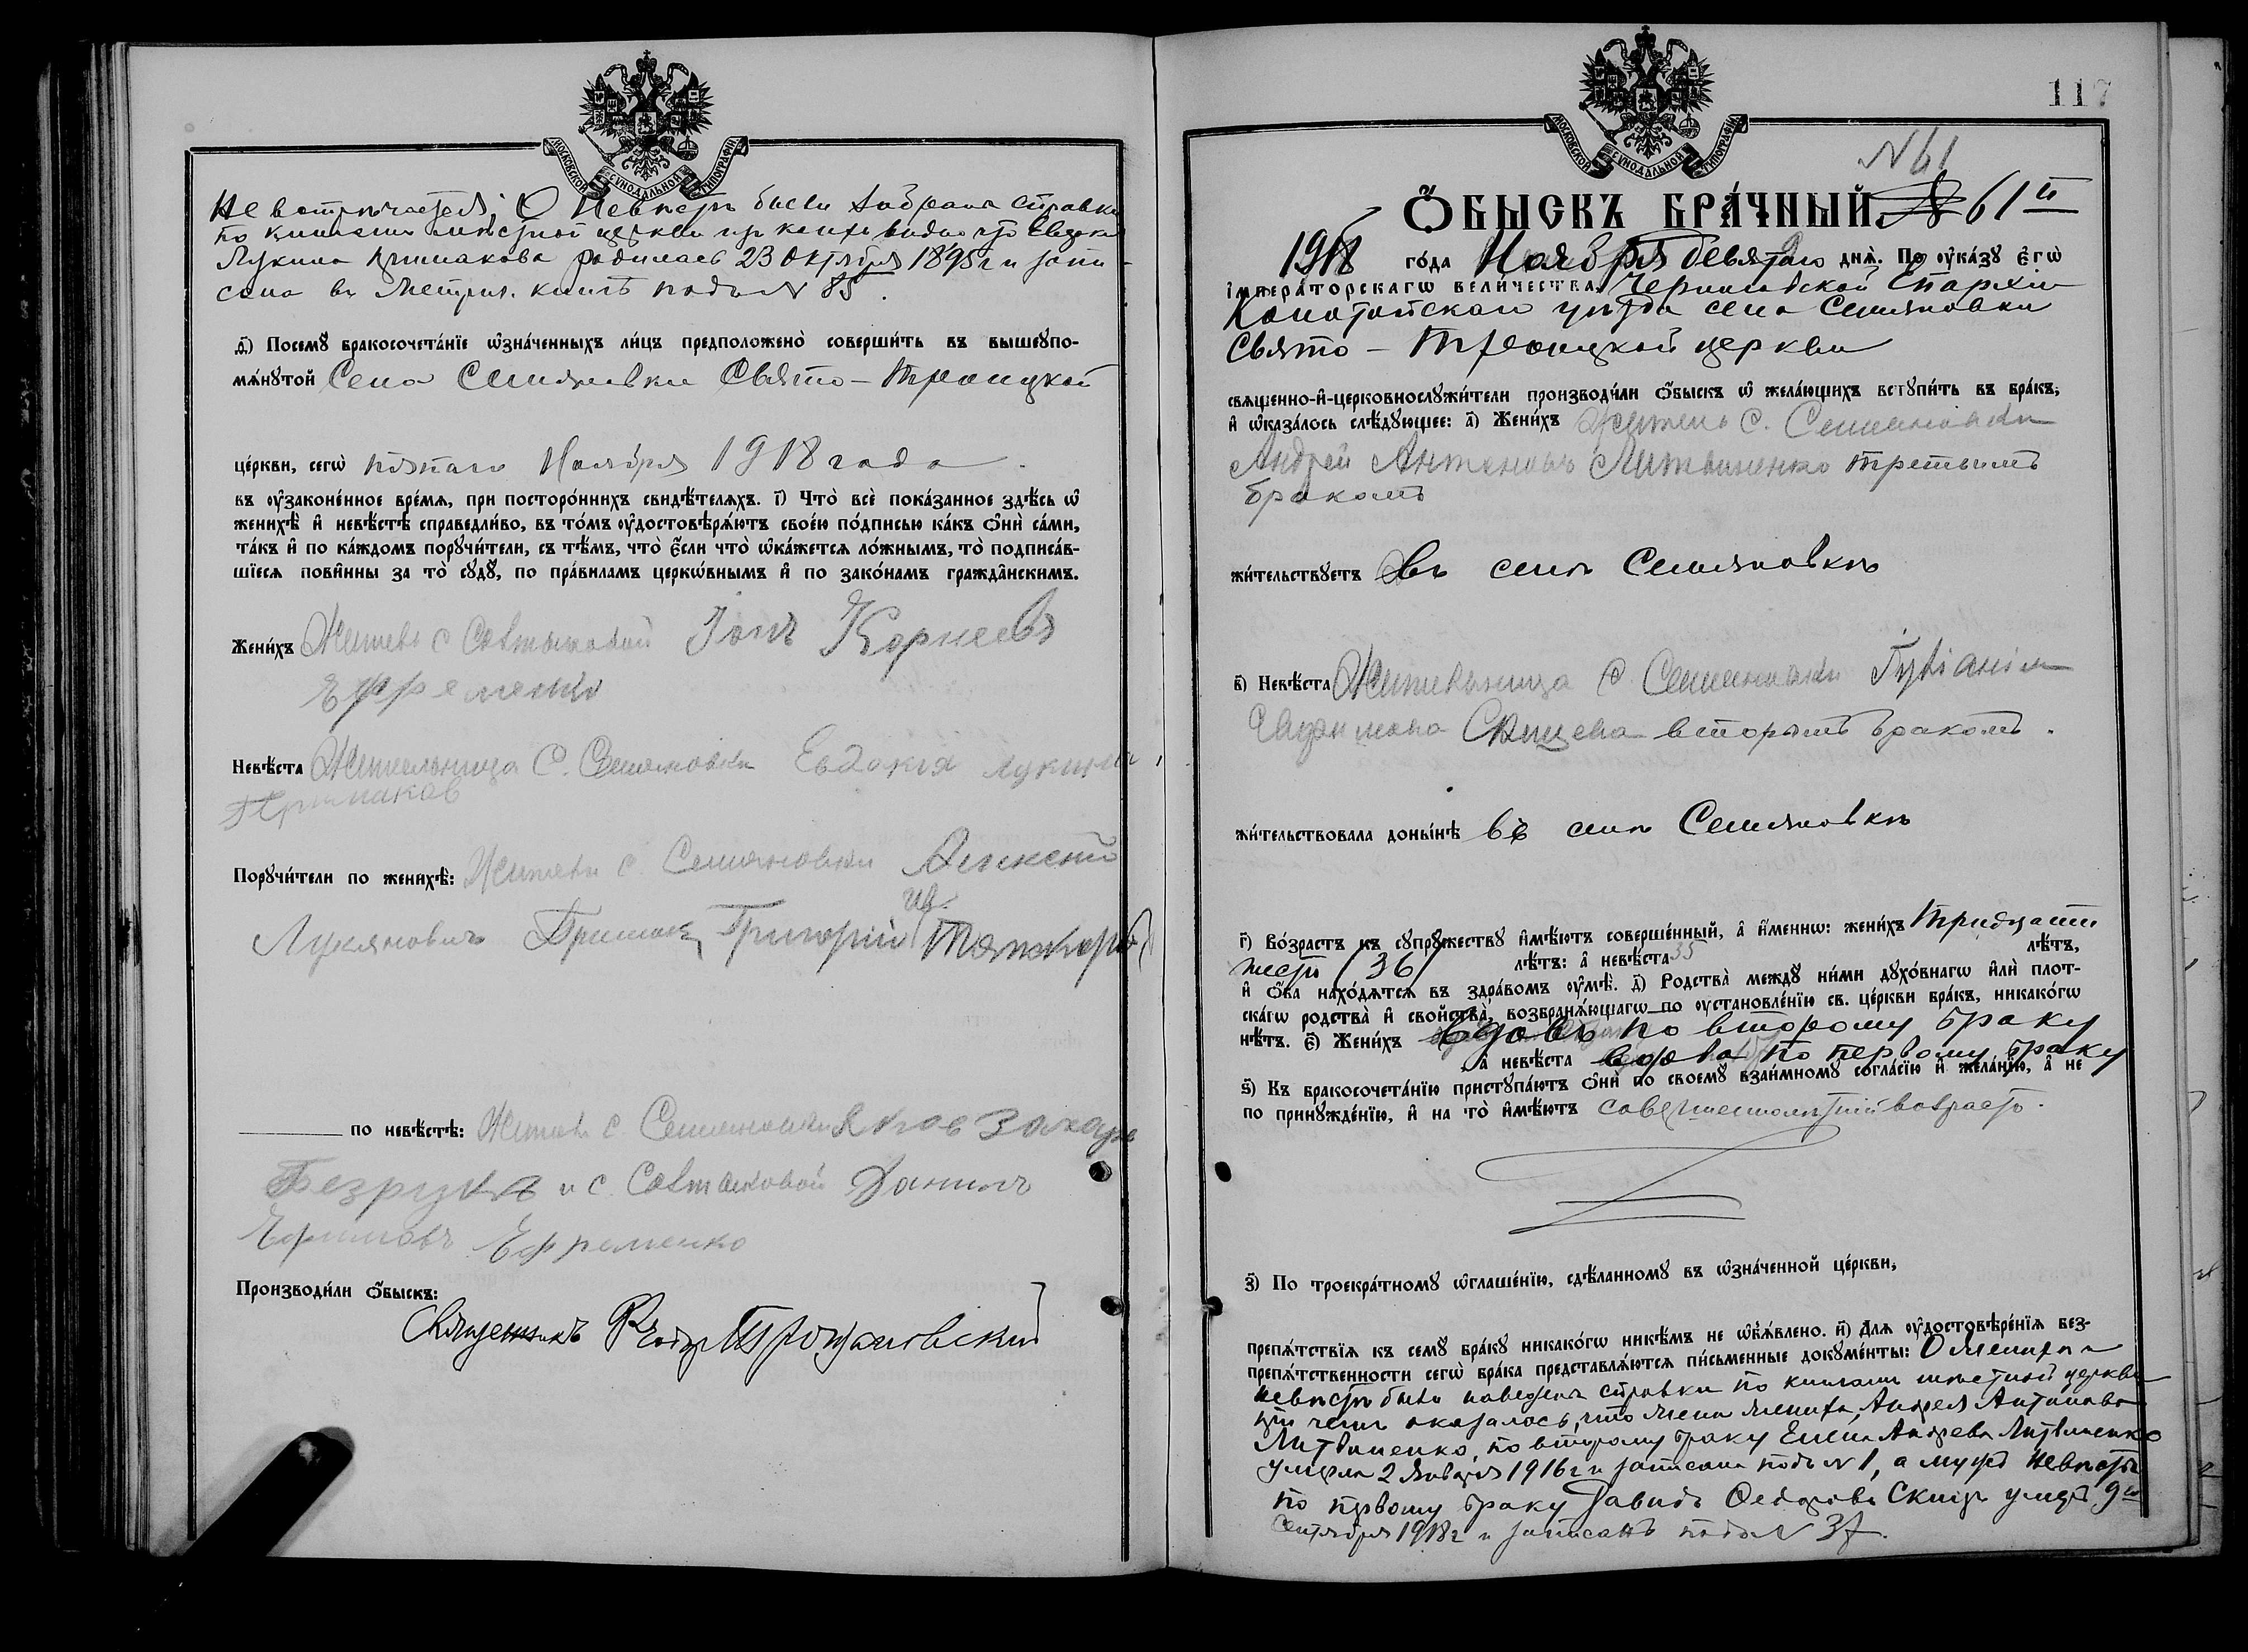 МОСКОВСКОЙ СѴНОДАЛЬНОЙ ТИПОГРАФІИ
Не встрѣчается; О Невѣстѣ были справки
по книгамъ мѣстной церкви видно что
Лукина Примакова родилась 23 Октября 1895 г и запи-
сана въ Метрич. книгѣ подъ N 85.
д҃) Посемꙋ бракосочета́нїе ѡ҆зна́ченныхъ ли́цъ предположено̀ соверши́ть въ вышеꙋпо-
мѧ́нꙋтой Села Семяновки Свято-Троицкой
це́ркви, сегѡ̀ пятаго Ноября 1918 года.
въ оу҆зако́ненное вре́мѧ, при посторо́ннихъ свидѣ́телѧхъ. і҃) Что̀ всѐ пока́занное здѣ́сь ѡ҆
женихѣ̀ и҆ невѣ́стѣ справедли́во, въ то́мъ оу҆достовѣрѧ́ютъ свое́ю по́дписью ка́къ ѻ҆нѝ са́ми,
та́къ и҆ по ка́ждомъ порꙋчи́тели, съ тѣ́мъ, что̀ є҆́сли что̀ ѡ҆ка́жетсѧ ло́жнымъ, то̀ подписа́в-
шїесѧ пови́нны за то̀ сꙋдꙋ̀, по пра́виламъ церкѡ́внымъ и҆ по зако́намъ гражда́нскимъ.
Жени́хъ Житель с Савтыковой Іонъ Корнеевъ
Ефременко
Невѣ́ста Жительница С. Семяновки Евдокія Лукина
Примаков
Порꙋчи́тели по женихѣ̀: Жители с. Семяновки Алексей
Лукяновичъ Примак, Григорій Ив.
по невѣ́стѣ: Житель с. Семяновки Яков Захаро
Безрукъ и с. Савтыковой Данилъ
Ефимовъ Ефременко
Производи́ли ѻ҆́быскъ:
Священникъ
117
МОСКОВСКОЙ СѴНОДАЛЬНОЙ ТИПОГРАФІИ
N 61
Ѻ҆БЫСКЪ БРА́ЧНЫЙ № 61й
1918 го́да Ноября девятаго днѧ̀. По оу҆ка́зꙋ є҆гѡ̀
і҆мпера́торскагѡ вели́чества, Черниговской Епархіи
Конотопскаго уѣзда села Семяновки
Свято-Троицкой церкви
свѧще́нно-и҆-церковнослꙋжи́тели производи́ли ѻ҆́быскъ ѡ҆ жела́ющихъ встꙋпи́ть въ бра́къ,
и҆ ѡ҆каза́лось слѣ́дꙋющее: а҃) Жени́хъ Житель с. Семяновки
Андрей Антоновъ Литвиненко третьимъ
бракомъ
жи́тельствꙋетъ въ селѣ Семяновкѣ
в҃) Невѣ́ста Жительница с. Семяновки
вторымъ бракомъ.
жи́тельствовала доны́нѣ въ селѣ Семяновкѣ
г҃) Во́зрастъ къ сꙋпрꙋ́жествꙋ и҆мѣ́ютъ соверше́нный, а҆ и҆́меннѡ: жени́хъ тридцати
шести (36) лѣ́тъ: а҆ невѣ́ста 35 лѣ́тъ,
и҆ ѻ҆́ба нахо́дѧтсѧ въ здра́вомъ оу҆мѣ̀. д҃) Родства̀ междꙋ̀ ни́ми дꙋхо́внагѡ и҆лѝ плот-
ска́гѡ родства̀ и҆ свойства̀, возбранѧ́ющагѡ по оу҆становле́нїю св. це́ркви бра́къ, никако́гѡ
нѣ́тъ. є҃) Жени́хъ вдовъ по второму браку
а҆ невѣ́ста вдова по первому браку
ѕ҃) Къ бракосочета́нїю пристꙋпа́ютъ ѻ҆нѝ по своемꙋ̀ взаи́мномꙋ согла́сїю и҆ жела́нїю, а҆ не
по принꙋжде́нїю, и҆ на то̀ и҆мѣ́ютъ совершеннолѣтній возрастъ.
з҃) По троекра́тномꙋ ѡ҆глаше́нїю, сдѣ́ланномꙋ въ ѡ҆зна́ченной це́ркви,
препѧ́тствїѧ къ семꙋ̀ бра́кꙋ никако́гѡ никѣ́мъ не ѡ҆б̾ѧ́влено. и҃) Длѧ оу҆достовѣре́нїѧ без-
препѧ́тственности сегѡ̀ бра́ка представлѧ́ютсѧ пи́сьменные докꙋме́нты: О женихѣ и
невѣстѣ были наведены справки по книгамъ мѣстной церкви
при чемъ оказалось, что жена жениха, Андрея Антонова
Литвиненко, по второму браку Елена Андреева Литвиненко
умерла 2 Января 1916 г и записана подъ N 1, а мужъ невѣсты
по первому браку Давидъ Федоровъ умеръ 9го
Сентября 1918 г и записанъ подъ N 37.